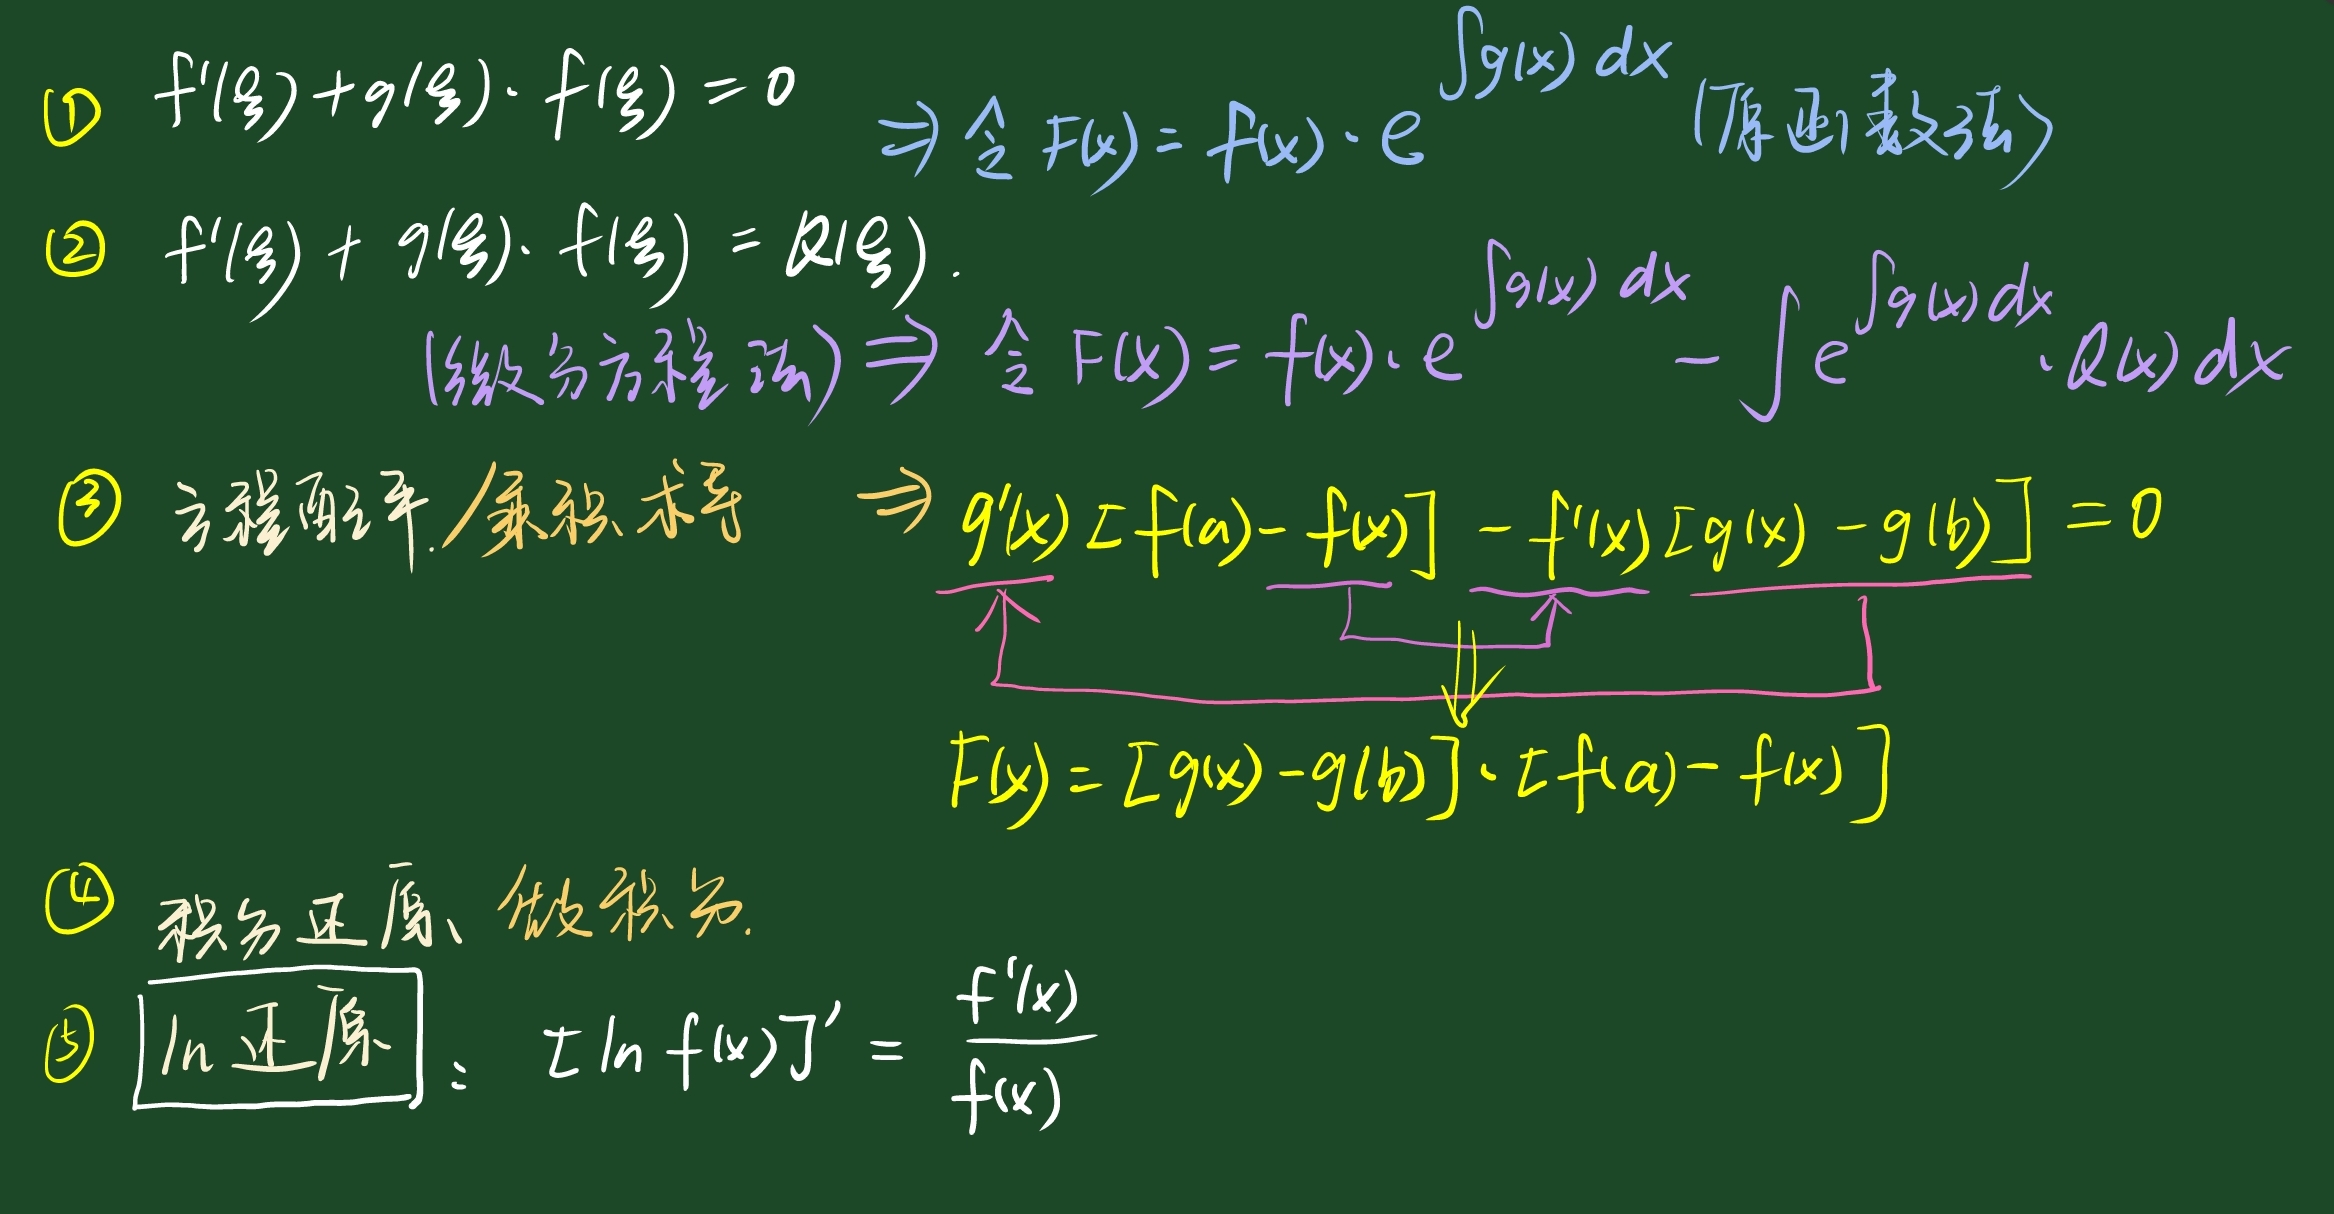 ① f'(ξ)+g(ξ)·f(ξ)=0 ⇒ 令 F(x)=f(x)·e^{∫g(x)dx} (原函数法)
② f'(ξ)+g(ξ)·f(ξ)=Q(ξ).
(微分方程法) ⇒ 令 F(x)=f(x)·e^{∫g(x)dx} - ∫e^{∫g(x)dx}·Q(x)dx
③ 方程配平./乘积求导 ⇒ g'(x)[f(a)-f(x)]-f'(x)[g(x)-g(b)]=0
F(x)=[g(x)-g(b)]·[f(a)-f(x)]
④ 积分还原、做积分.
⑤ ln还原: [ln f(x)]'=f'(x)/f(x)